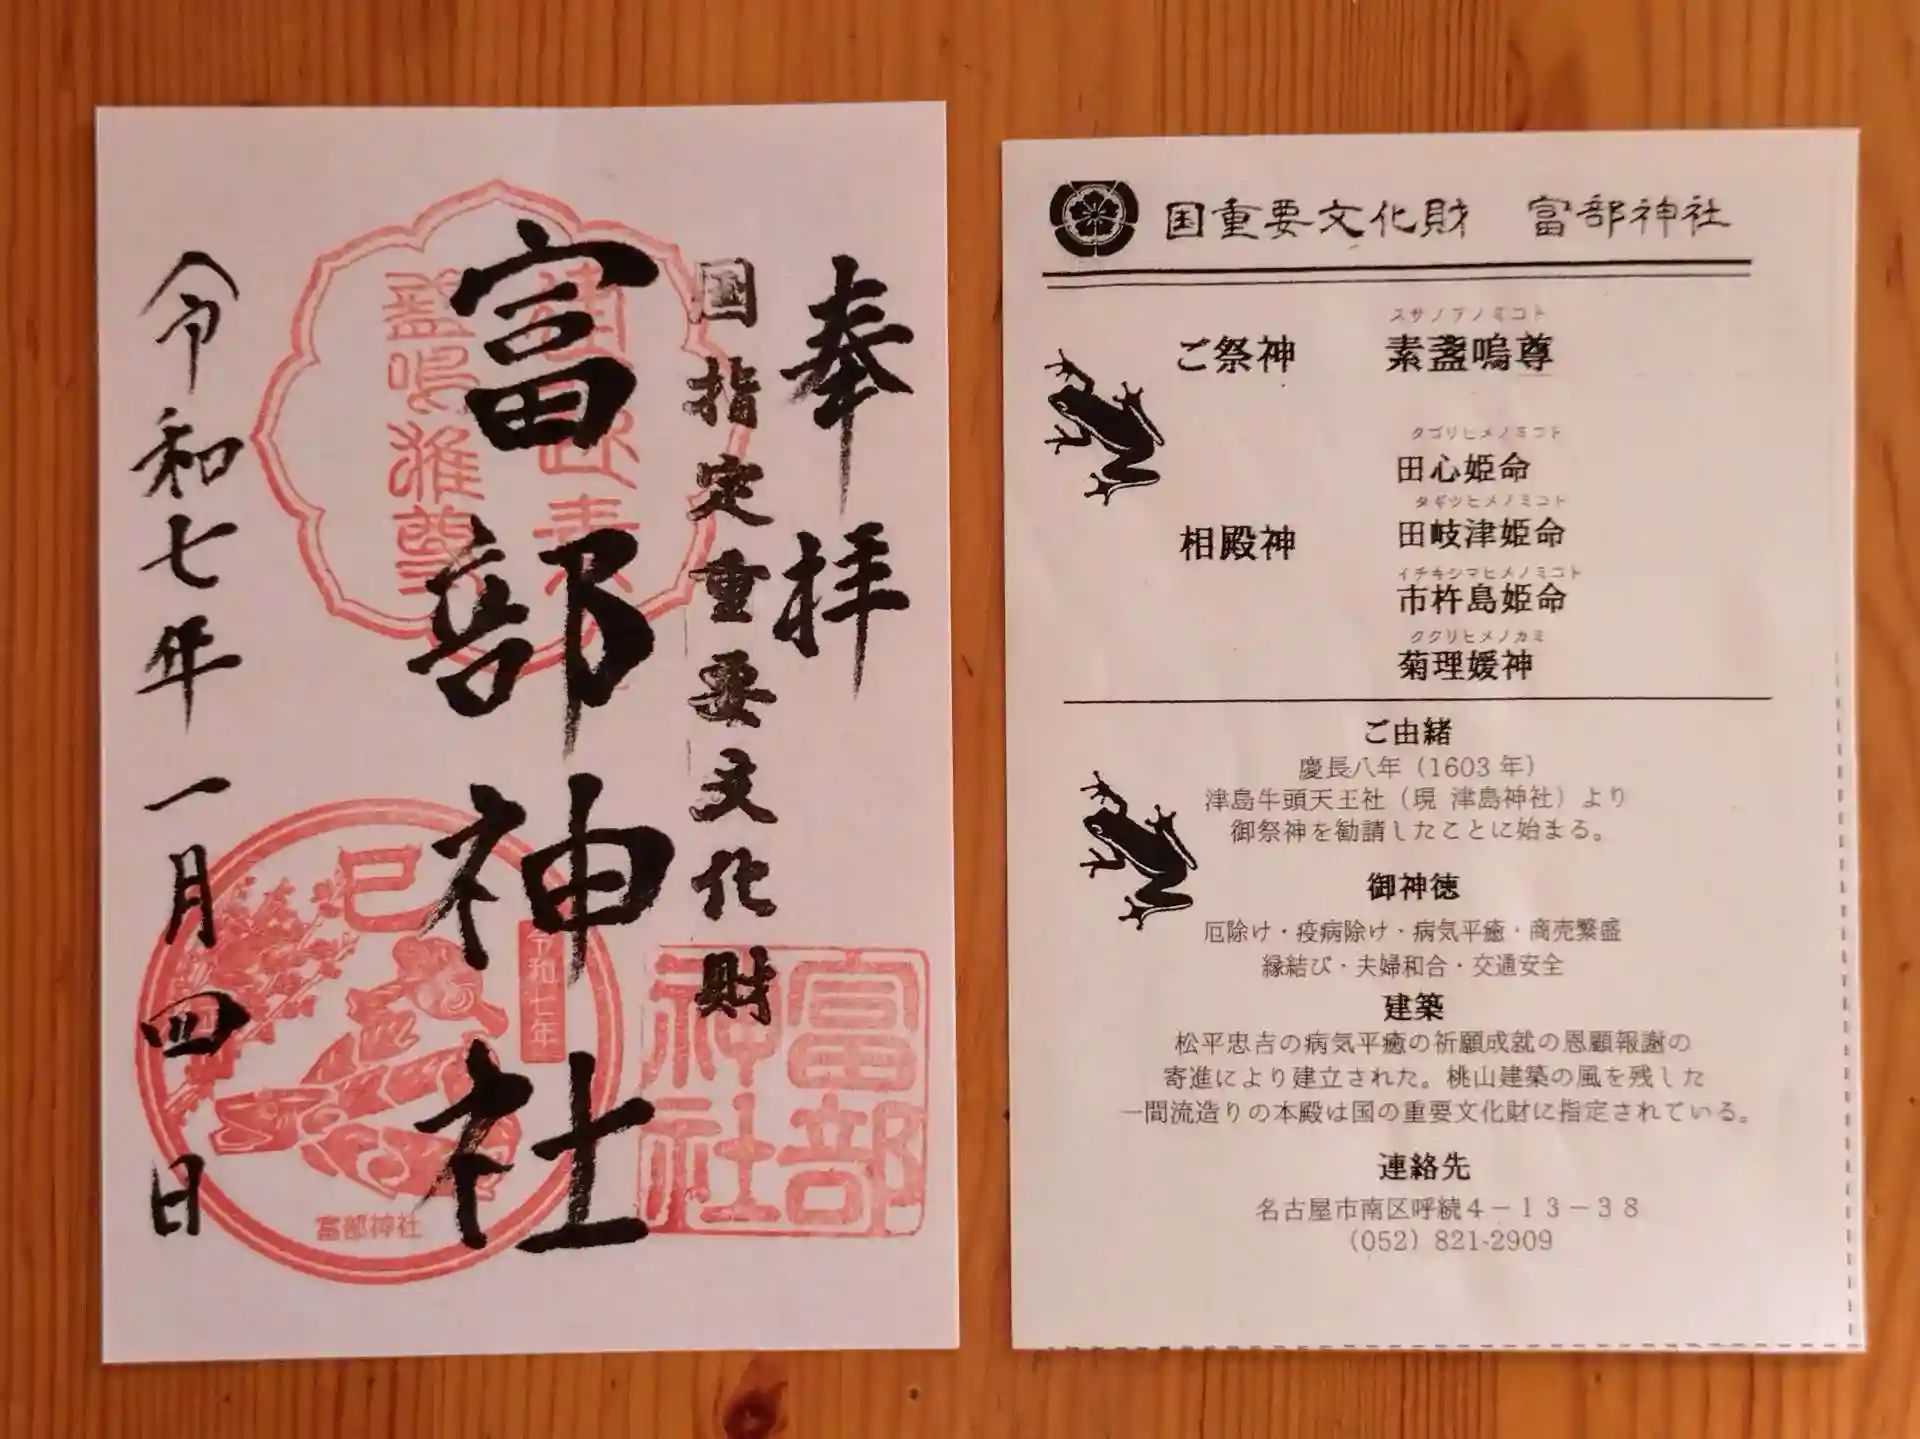 奉拝
国指定重要文化財
富部神社
令和七年一月四日
富部
神社
巳
令和七年
富部神社
国重要文化財　富部神社
スサノヲノミコト
ご祭神　素盞嗚尊
相殿神
タゴリヒメノミコト
田心姫命
タギツヒメノミコト
田岐津姫命
イチキシマヒメノミコト
市杵島姫命
ククリヒメノカミ
菊理媛神
ご由緒
慶長八年（1603 年）
津島牛頭天王社（現 津島神社）より
御祭神を勧請したことに始まる。
御神徳
厄除け・疫病除け・病気平癒・商売繁盛
縁結び・夫婦和合・交通安全
建築
松平忠吉の病気平癒の祈願成就の恩顧報謝の
寄進により建立された。桃山建築の風を残した
一間流造りの本殿は国の重要文化財に指定されている。
連絡先
名古屋市南区呼続４－１３－３８
（052）821-2909